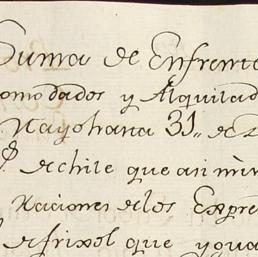 Suma de Enfrente
omodados y Alquilad
Nayohana 31,, de
de chile que asi mim
Raciones de los Expre
de frixol que ygua